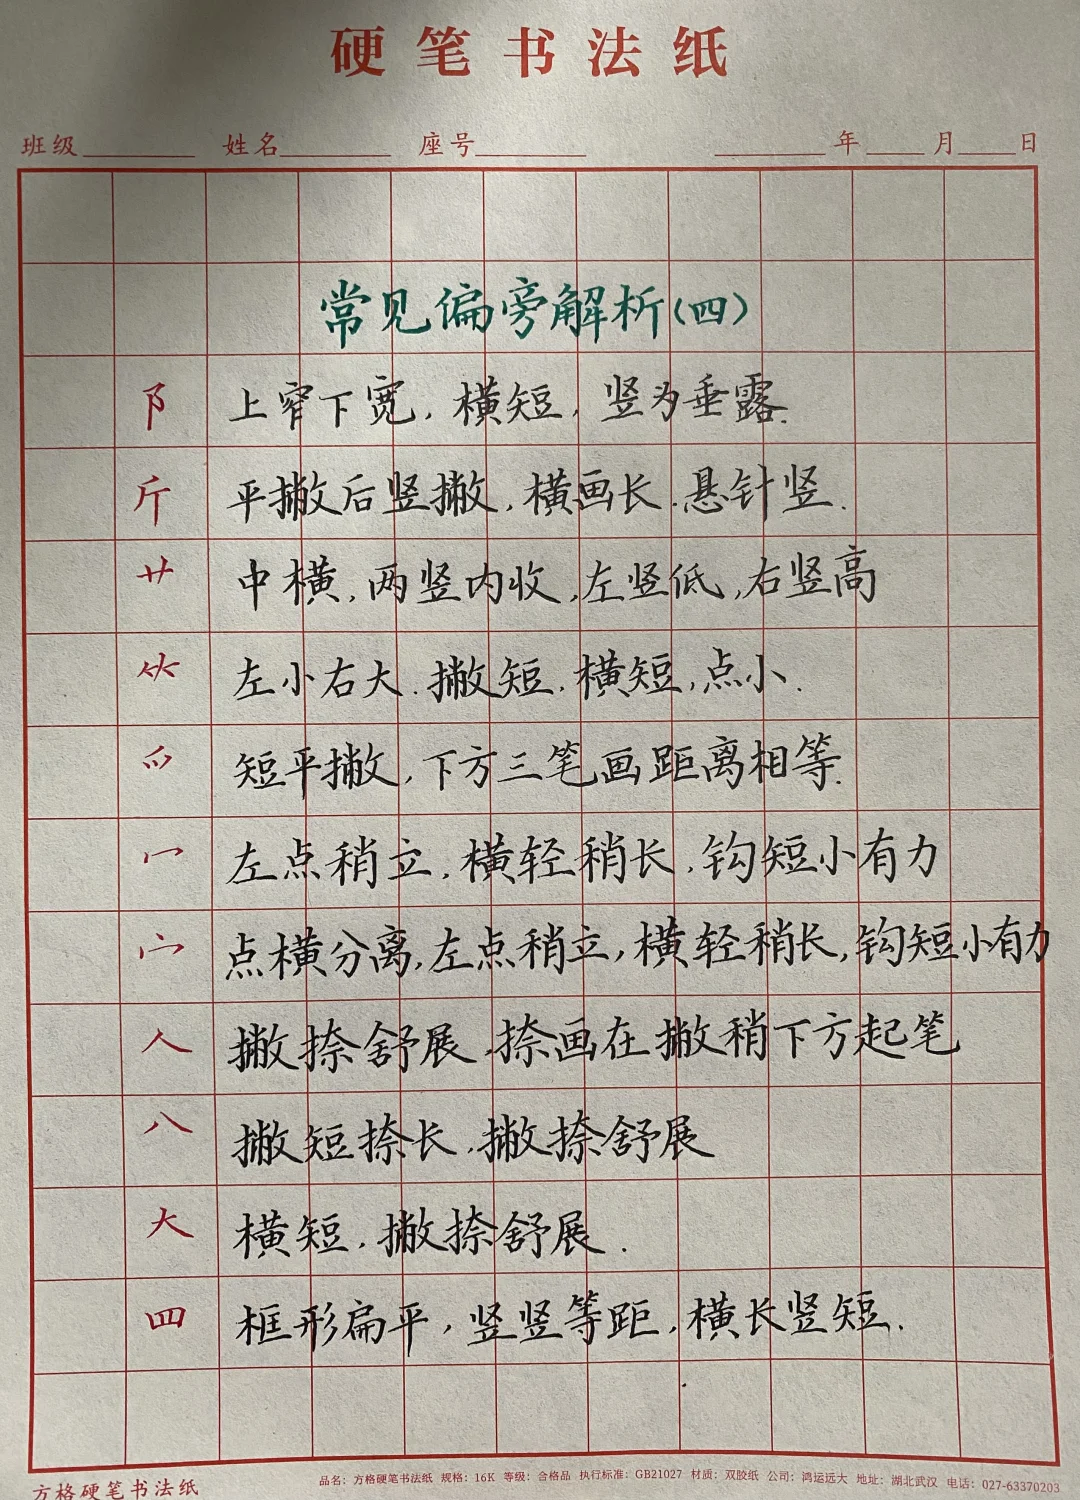 硬笔书法纸
班级 姓名 座号 年 月 日
常见偏旁解析(四)
阝 上窄下宽,横短,竖为垂露.
斤 平撇后竖撇,横画长.悬针竖.
艹 中横,两竖内收,左竖低,右竖高
⺮ 左小右大.撇短,横短,点小.
爫 短平撇,下方三笔画距离相等.
冖 左点稍立,横轻稍长,钩短小有力
宀 点横分离,左点稍立,横轻稍长,钩短小有力
人 撇捺舒展,捺画在撇稍下方起笔
八 撇短捺长,撇捺舒展
大 横短,撇捺舒展.
罒 框形扁平,竖竖等距,横长竖短.
方格硬笔书法纸
品名:方格硬笔书法纸 规格:16K 等级:合格品 执行标准:GB21027 材质:双胶纸 公司:鸿运远大 地址:湖北武汉 电话:027-63370203